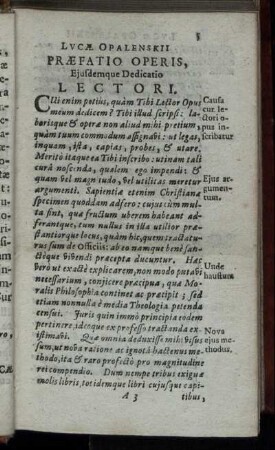 5
LVCÆ OPALENSKII
PRÆFATIO OPERIS,
Ejusdemque Dedicatio
LECTORI.
CUi enim potius, quàm Tibi Lector Opus
meum dedicem? Tibi illud scripsi: la-
borisque & operæ non aliud mihi pretium,
quàm tuum commodum assignabi: ut legas,
inquam, ista, capias, probes, & utare.
Meritò itaque ea Tibi inscribo: utinam tali
curâ noscenda, qualem ego impendi: &
quam vel magnitudo, vel utilitas meretur
argumenti. Sapientiæ tenim Christianæ
specimen quoddam adfero: cujus cùm mul-
ta sint, quæ fructum uberem habeant ad-
ferantque, tum nullus in illa utilior præ-
stantiorque locus, quàm hic, quem tractatu-
rus sum de Officiis: ab eo namque bene san-
ctèque vivendi præcepta ducuntur. Hæc
verò ut exactè explicarem, non modo putavi
necessarium, conjicere præcipua, quæ Mo-
ralis Philosophia continet ac præcipit; sed
etiam nonnulla è media Theologia petenda
censui. Juris quin immò principia eodem
pertinere, ideoque ex professo tractanda ex-
istimavi. Quæ omnia deduxisse mihi visus
sum, ut nova ratione ac ignotâ hactenus me-
thodo, ita & raro profectò pro magnitudine
rei compendio. Dum nempe tribus exigu-
molis libris, totidemque libri cujusque capi-
A 3 tibus,
Causa
cur le-
ctori o-
pus in-
scribatur
Ejus ar-
gumen-
tum.
Unde
haustum
Nova
ejus me-
thodus.